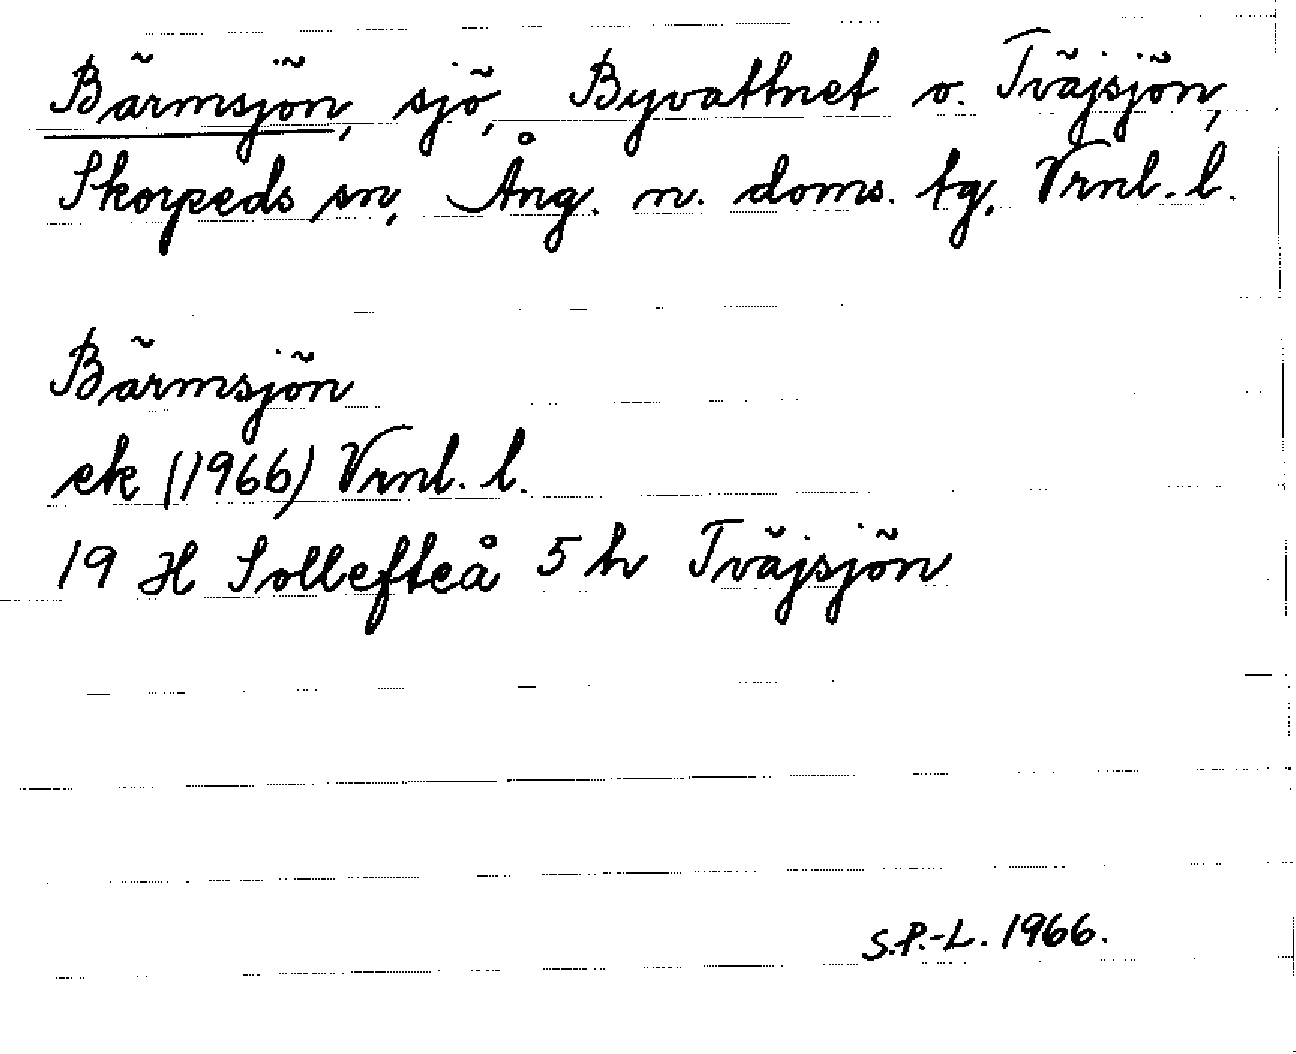 Bärmsjön, sjö, Byvattnet o. Tväjsjön,
Skorpeds sn, Ång. n. doms. tg, Vrnl. l.
Bärmsjön
ek (1966) Vrnl. l.
19 H Sollefteå 5 h Tväjsjön
S.P.-L. 1966.